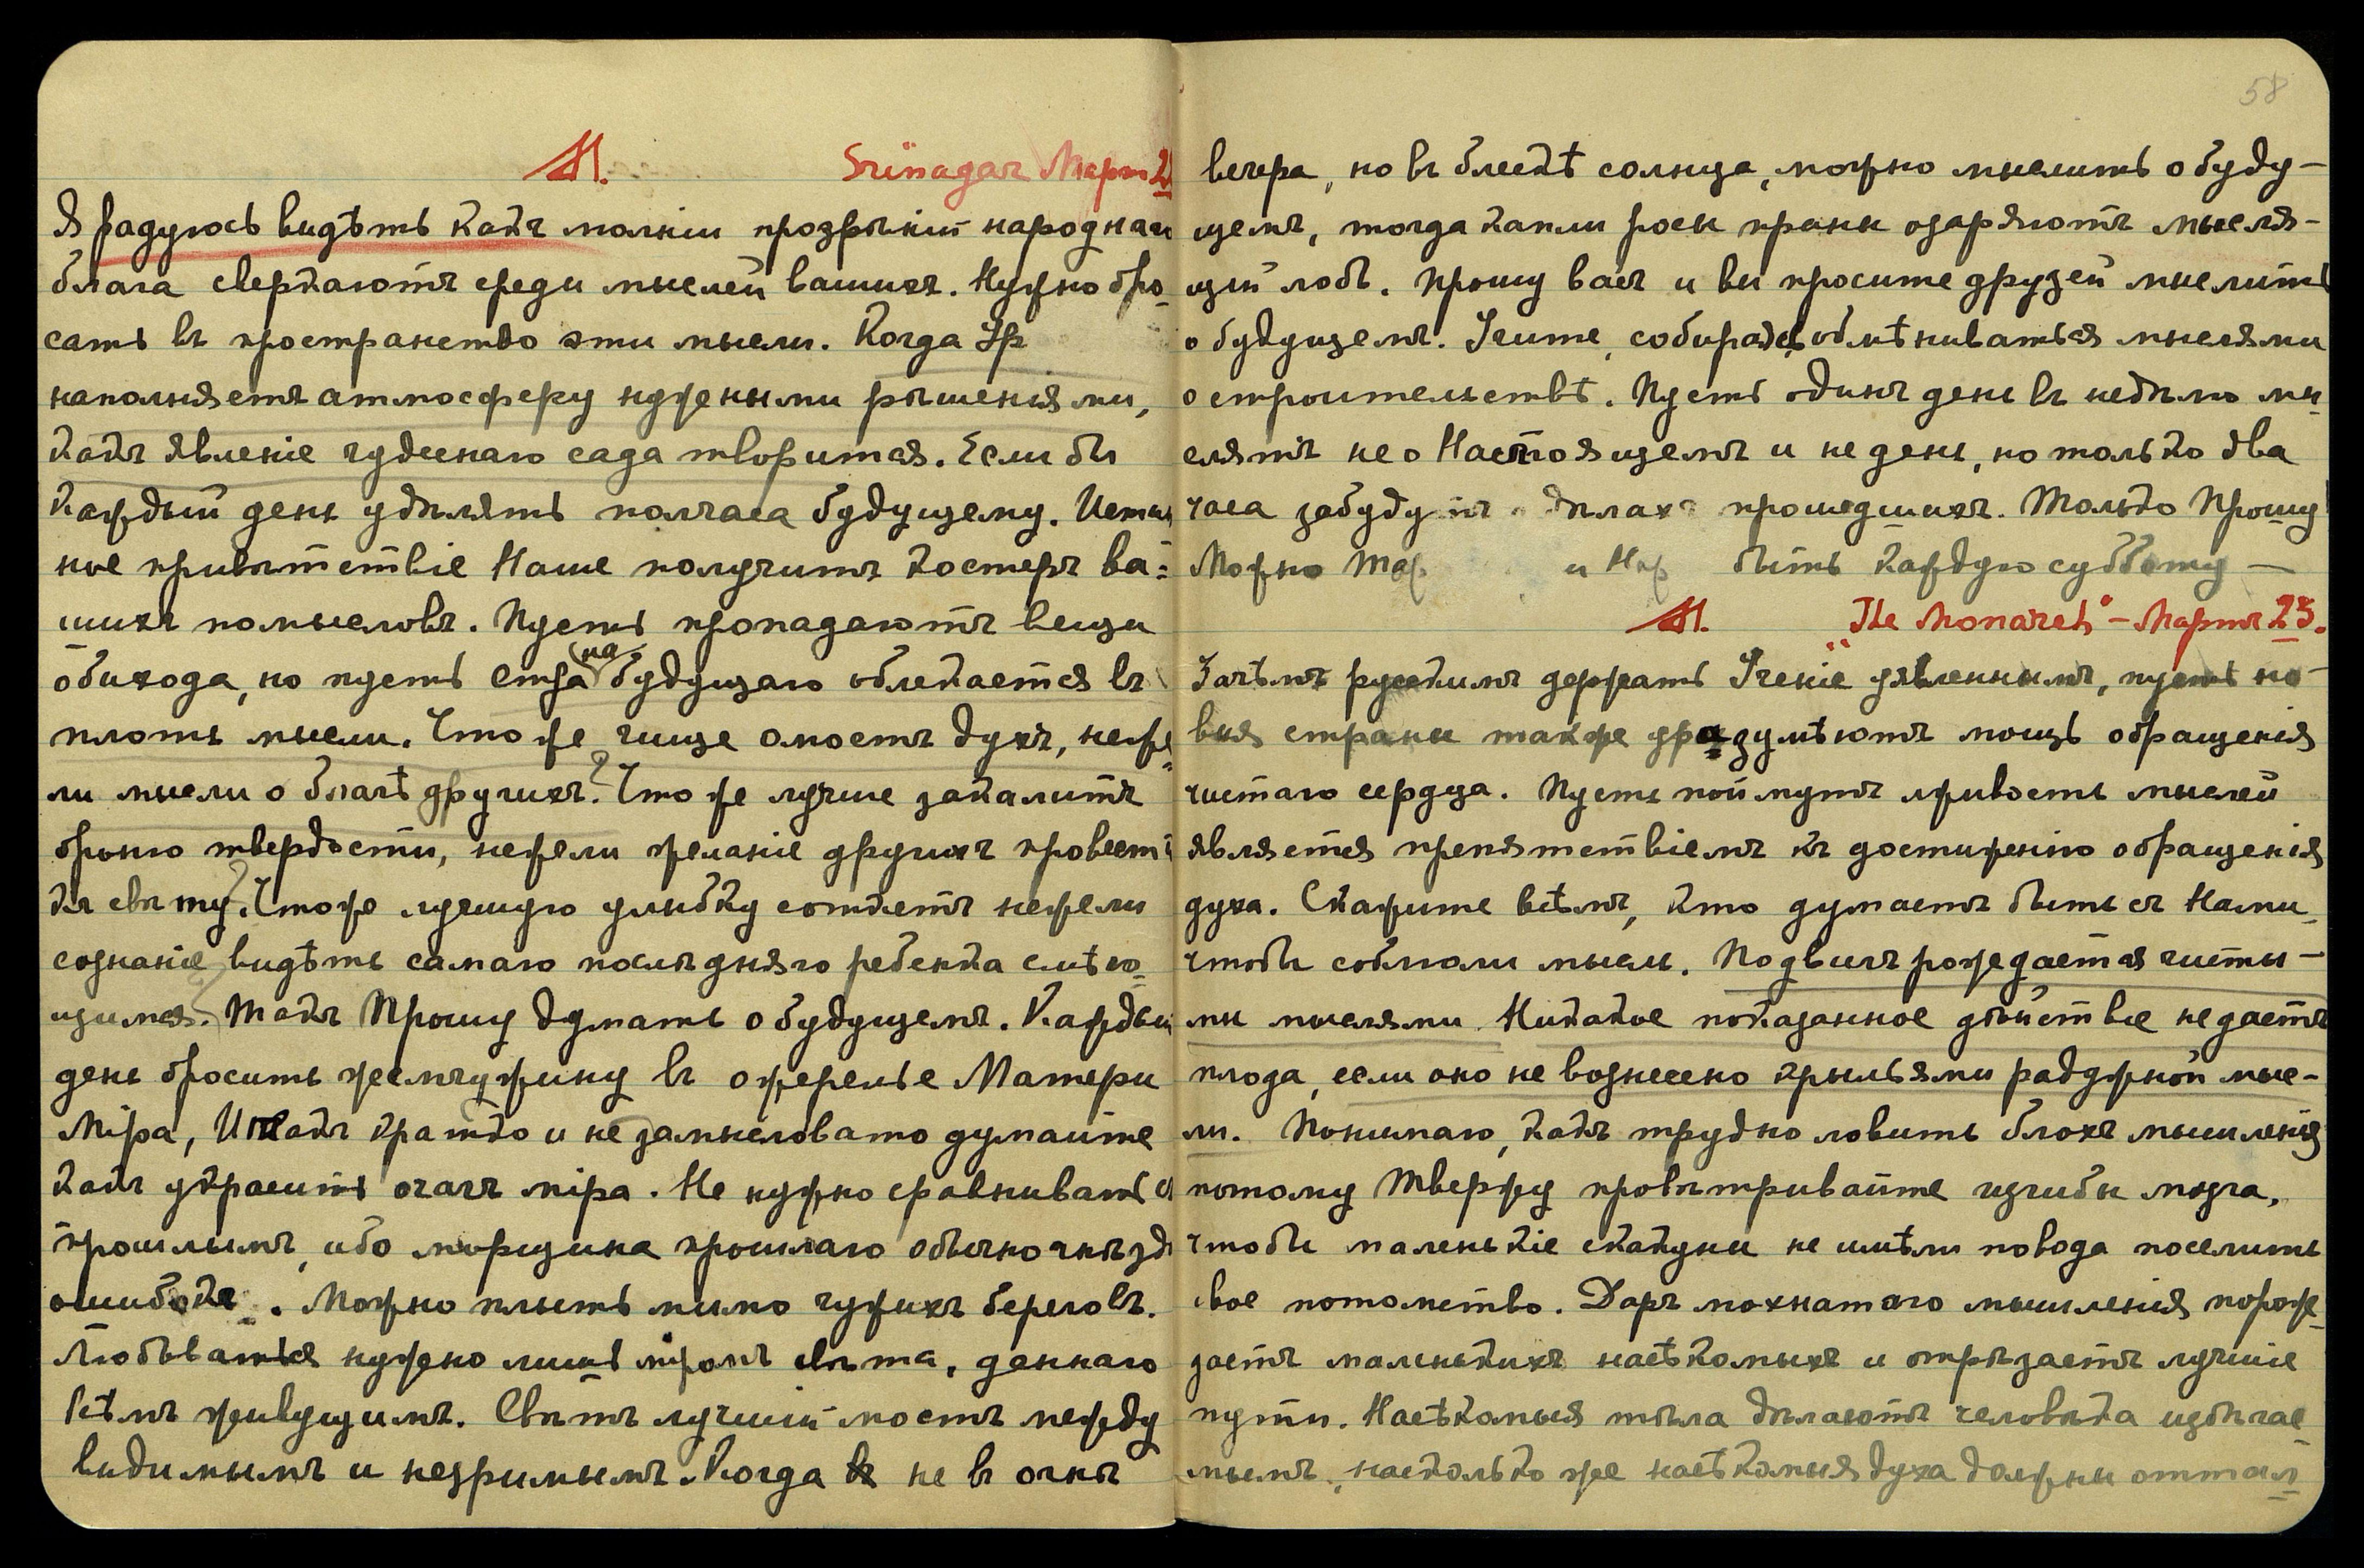 М. Srinagar Март 2
Я радуюсь видѣть какъ молніи прозрѣній народнаго
блага сверкаютъ среди мыслей вашихъ. Нужно бро-
сать въ пространство эти мысли. Когда Ур
наполняетъ атмосферу нужными рѣшеніями,
какъ явленіе чудеснаго сада творится. Если бы
каждый день удѣлять полчаса будущему. Истин
ное привѣтствіе Наше получитъ костеръ ва-
шихъ помысловъ. Пусть пропадаютъ вещи
обихода, но пусть стра на будущаго облекается въ
плоть мысли. Что же чище омоетъ духъ, неже
ли мысли о благѣ другихъ? Что же лучше закалитъ
броню твердости, нежели желаніе другихъ провести
къ свѣту? Что же лучшую улыбку соткетъ нежели
сознаніе видѣть самаго послѣдняго ребенка смѣю-
щимся. Такъ Прошу думать о будущемъ. Каждый
день бросить жемчужину въ ожерелье Матери
Міра, И такъ кратко и не замысловато думайте
какъ украсить очагъ міра. Не нужно сравнивать съ
прошлымъ, ибо морщина прошлаго обычно гнѣздо
ошибокъ. Можно плыть мимо чужихъ береговъ.
Любоваться нужно лишь міромъ свѣта, даннаго
всѣмъ живущимъ. Свѣтъ лучшій мостъ между
видимымъ и незримымъ. Когда не въ огнѣ
58
вечера, но въ блескѣ солнца, можно мыслить о буду-
щемъ, тогда капли росы праны озаряютъ мысля-
щій лобъ. Прошу васъ и вы просите друзей мыслить
о будущемъ. Учите, собираясь, обмѣниваться мыслями
о строительствѣ. Пусть одинъ день въ недѣлю мы-
слятъ не о Настоящемъ и не день, но только два
часа забудутъ о дѣлахъ прошедшихъ. Только Прошу
Можно и быть каждую субботу —
М. "The Monarch" — Мартъ 25.
Зачѣмъ русскимъ держать Ученіе явленнымъ, пусть но-
выя страны также уразумѣютъ мощь обращенія
чистаго сердца. Пусть поймутъ лживость мыслей
является препятствіемъ къ достиженію обращенія
духа. Скажите всѣмъ, кто думаетъ быть съ Нами,
чтобы соблюли мысли. Подвигъ рождается чисты-
ми мыслями. Никакое показанное дѣйствіе не даетъ
плода, если оно не вознесено крыльями радужной мыс-
ли. Понимаю, какъ трудно ловить блохъ мышленія
потому Твержу провѣтривайте изгибы мозга,
чтобы маленькіе скакуны не имѣли повода поселить
свое потомство. Даръ мохнатаго мышленія порож-
даетъ маленькихъ насѣкомыхъ и отрѣзаетъ лучшіе
пути. Насѣкомыя тѣла дѣлаютъ человѣка избѣгае
мымъ, насколько же насѣкомыя духа должны оттал